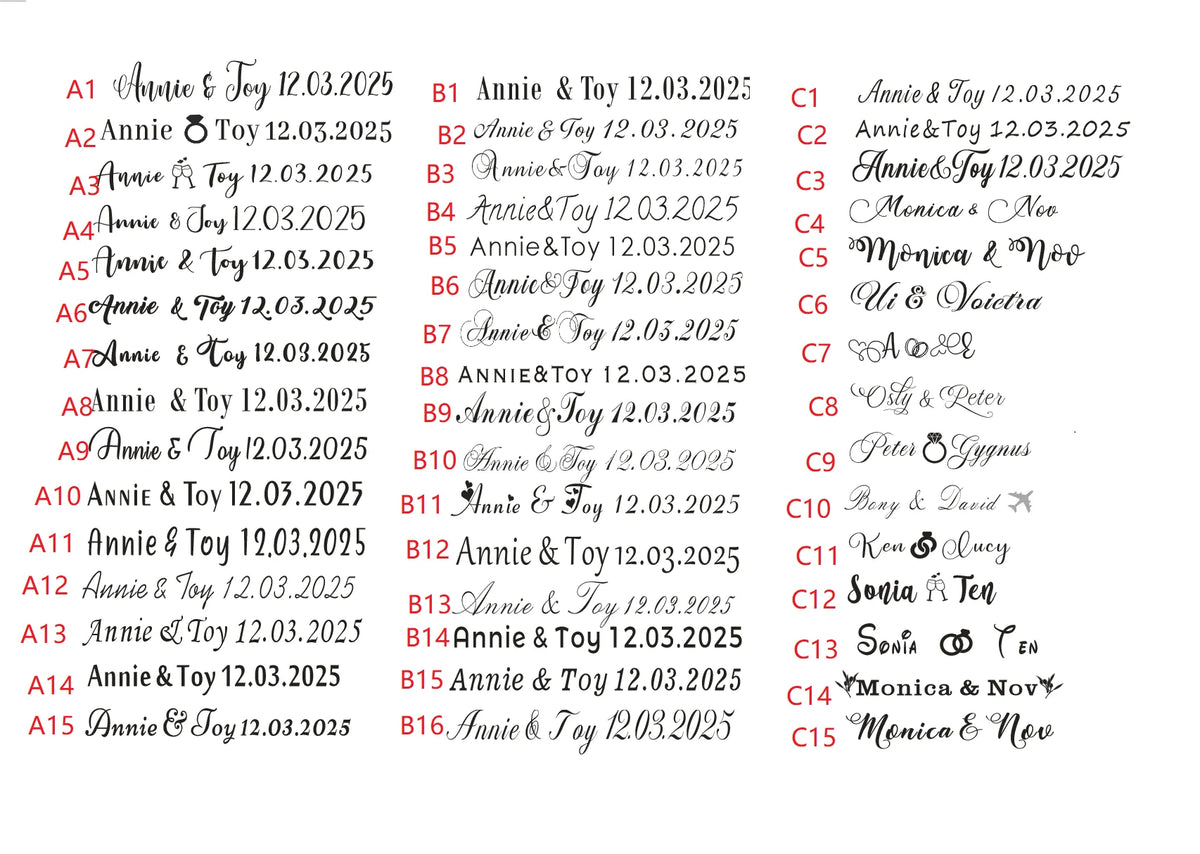 A1 Annie & Toy 12.03.2025
A2 Annie Toy 12.03.2025
A3 Annie Toy 12.03.2025
A4 Annie & Toy 12.03.2025
A5 Annie & Toy 12.03.2025
A6 Annie & Toy 12.03.2025
A7 Annie & Toy 12.03.2025
A8 Annie & Toy 12.03.2025
A9 Annie & Toy 12.03.2025
A10 Annie & Toy 12.03.2025
A11 Annie & Toy 12.03.2025
A12 Annie & Toy 12.03.2025
A13 Annie & Toy 12.03.2025
A14 Annie & Toy 12.03.2025
A15 Annie & Toy 12.03.2025
B1 Annie & Toy 12.03.2025
B2 Annie & Toy 12.03.2025
B3 Annie&Toy 12.03.2025
B4 Annie&Toy 12.03.2025
B5 Annie&Toy 12.03.2025
B6 Annie&Toy 12.03.2025
B7 Annie&Toy 12.03.2025
B8 Annie&Toy 12.03.2025
B9 Annie&Toy 12.03.2025
B10 Annie & Toy 12.03.2025
B11 Annie & Toy 12.03.2025
B12 Annie & Toy 12.03.2025
B13 Annie & Toy 12.03.2025
B14 Annie & Toy 12.03.2025
B15 Annie & Toy 12.03.2025
B16 Annie & Toy 12.03.2025
C1 Annie & Toy 12.03.2025
C2 Annie&Toy 12.03.2025
C3 Annie&Toy 12.03.2025
C4 Monica & Nov
C5 Monica & Nov
C6 Ui & Voictra
C7 A E
C8 Osty & Peter
C9 Peter Gygnus
C10 Bony & David
C11 Ken Lucy
C12 Sonia Ten
C13 Sonia Ten
C14 Monica & Nov
C15 Monica & Nov